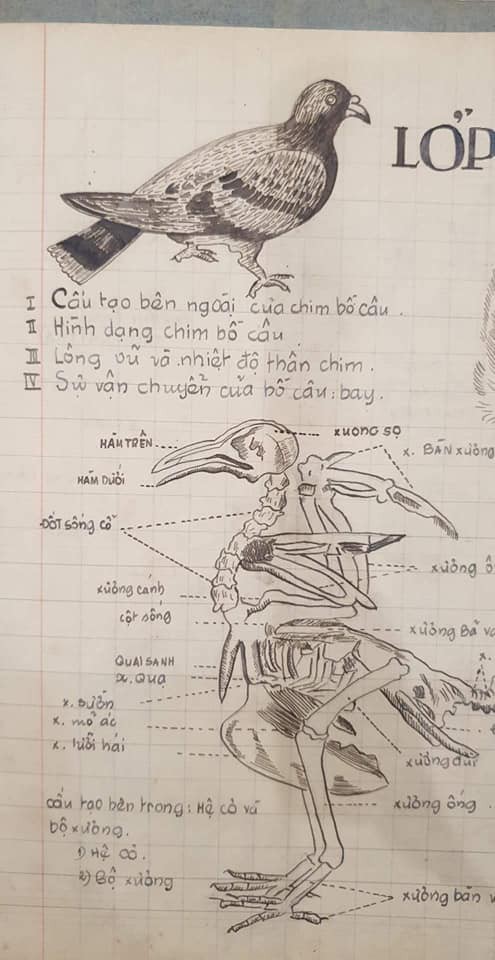 LỚP
I Cấu tạo bên ngoài của chim bồ câu.
II Hình dạng chim bồ câu
III Lông vũ và nhiệt độ thân chim.
IV Sự vận chuyển của bồ câu: bay.
HÀM TRÊN
xương sọ
x. BÀN xương
HÀM DƯỚI
ĐỐT SỐNG CỔ
xương
xương cánh
cột sống
xương Bả
QUAI SANH
x. QUẠ
x. sườn
x. mỏ ác
x. lưỡi hái
xương đùi
cấu tạo bên trong: Hệ cơ và
bộ xương.
xương ống
1) Hệ cơ.
2) Bộ xương
xương bàn